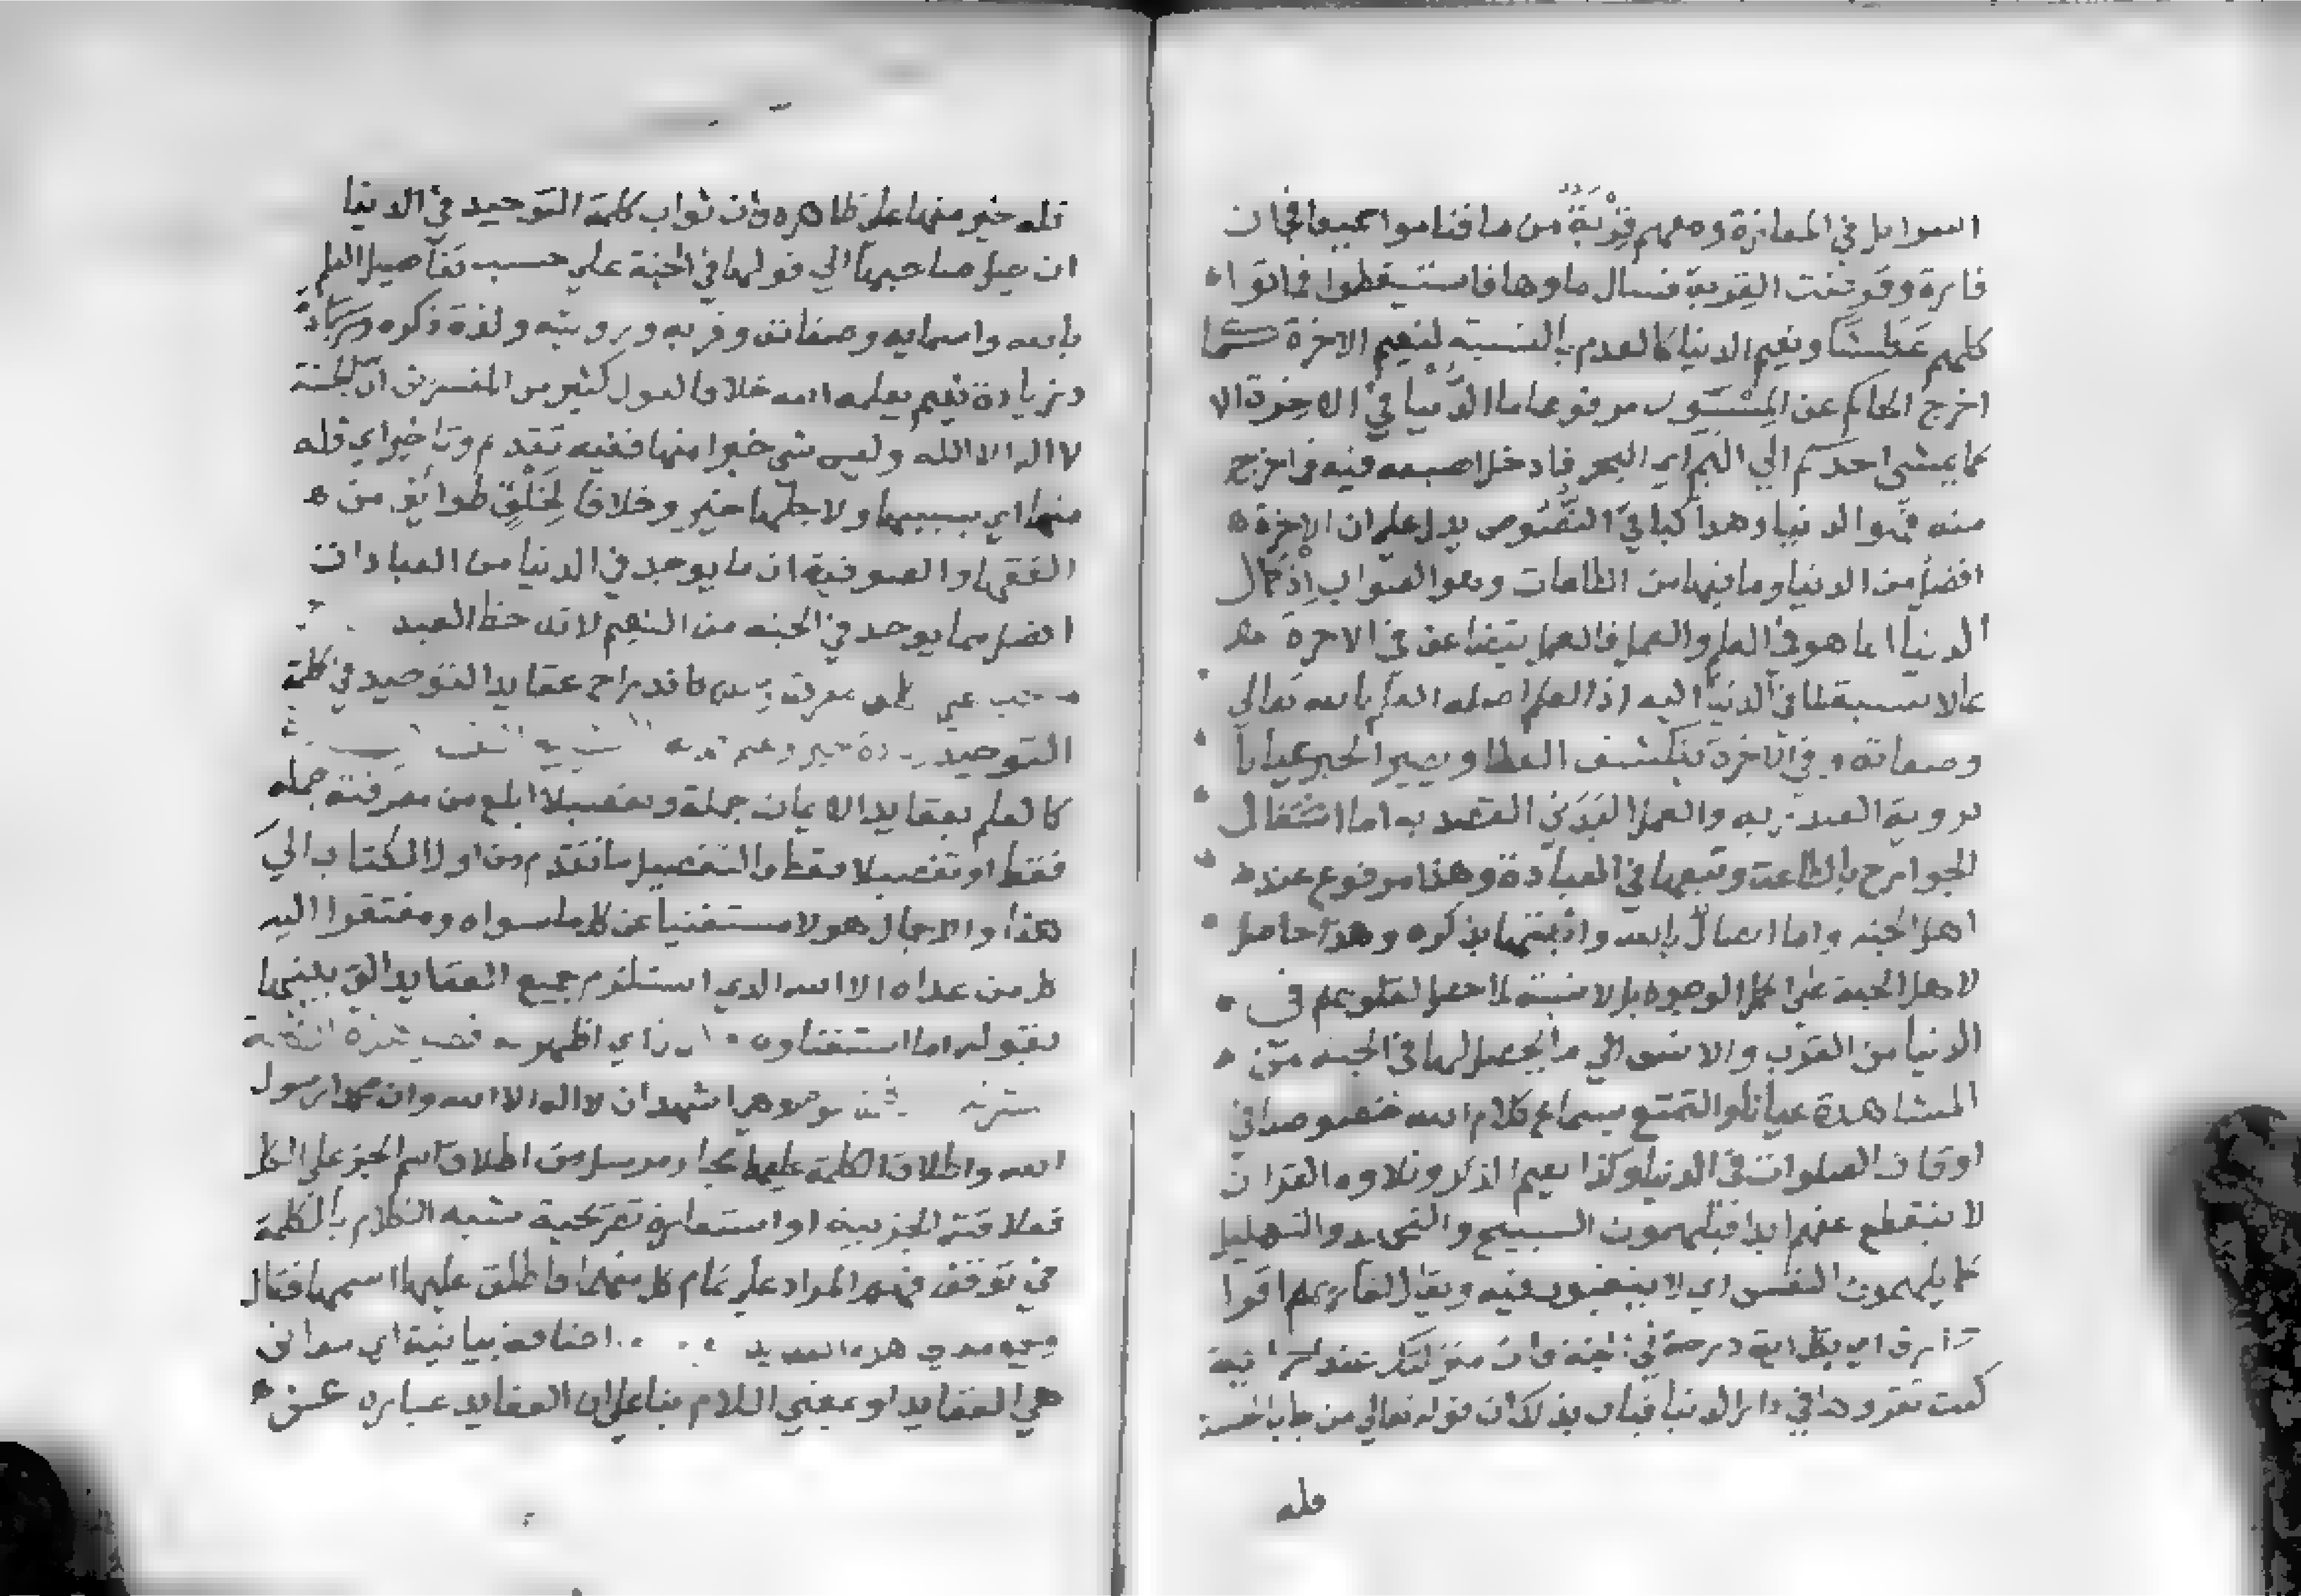 السوايل في المفازة ومعهم قِرْبَةٌ من ما فناموا جميعا في ان
فايرة وقد فتحت القربة فسال ماوها فاستيقظوا فماتوا
كلهم عَطشًا ونعيم الدنيا كالعدم بالنسبة لنعيم الاخرة كما
اخرج الحاكم عن المِسْوَر مرفوعا ما الدُّنيا في الاخرة الا
كما يمشي احدكم الي اليم اي البحر فادخل اصبعه فيه فما خرج
منه فهو الدنيا وهذا كباقي النُّصُوص يدل علي ان الاخرة
افضل من الدنيا وما فيها من الطاعات وهو الصواب اِذْ كمال
الدنيا انما هو في العلم والعمل فالعمل يتضاعف في الاخرة
بما لا نسبة لما في الدنيا اليه اذ العلم اصله العلم بالله تعالي
وصفاته وفي الاخرة ينكشف الغطا ويصير الخبر عيانا
بروية العبد ربه والعمل البَدَني القصد به اما اشتغال
الجوارح بالطاعة وتعبها في العبادة وهذا مرفوع عند
اهل الجنه واما اتصال بالله واذينها بذكره وهذا حاصل
لاهل الجنة علي اكمل الوجوه بل لا نسبة لما حصل لقلوبهم في
الدنيا من القرب والانس الي ما يحصل لها في الجنه من
المشاهدة عيانا والتمتع بسماع كلام الله خصوصا في
اوقات الصلوات في الدنيا وكذا نعيم الذكر وتلاوه القران
لا ينقطع عنهم ابدا فيلهمون التسبيح والتحميد والتهليل
كما يلهمون النفس اي لا يتعبون فيه ويقال لقاريهم اقرا
وارق اي بكل اية درجة في الجنة فان منزلتك عند اخر اية
كنت تقروها في دار الدنيا فبان بذلك ان قوله تعالي من جا بالحسنة
فله
فله خير منها علي ظاهره وان ثواب كلمة التوحيد في الدنيا
ان يصل صاحبها الي قولها في الجنة علي حسب تفاصيل العلم
بالله واسمايه وصفاته وقربه ورويته ولذة ذكره وزيادة
وزيادة نعيم يعلمه الله خلافا لقول كثير من المفسرين ان الحسنة
لا اله الا الله وليس شي خيرا منها ففيه تقديم وتاخير اي فله
منها اي بسببها ولاجلها خير وخلافا لِخَلْقٍ طوايف من
الفقها والصوفية ان ما يوجد في الدنيا من العبادات
افضل مما يوجد في الجنه من النعيم لانه حظ العبد
عقايد التوحيد في كلمة
التوحيد
كالعلم بعقايد الايمان جملة وتفصيلا ابلغ من معرفته جملة
فقط او تفصيلا فقط والتفصيل ما تقدم من اول الكتاب الي
هذا والاجمال هو لا مستغنيا عن كل ما سواه ومفتقرا اليه
كل من عداه الا الله الذي استلزم جميع العقايد التي بينها
بقوله اما استغناوه اي اظهر هذه
وهي اشهد ان لا اله الا الله وان محمدا رسول
الله واطلاق الكلمة عليها مجاز مرسل من اطلاق اسم الجز علي الكل
فعلاقته الجزيية او استعارة تصريحية شبه الكلام بالكلمة
في توقف فهم المراد علي تمام كل منهما فاطلق عليها اسمها فقال
هذه اضافة بيانية اي معاني
هي العقايد او بمعني اللام بنا علي ان العقايد عباره عن